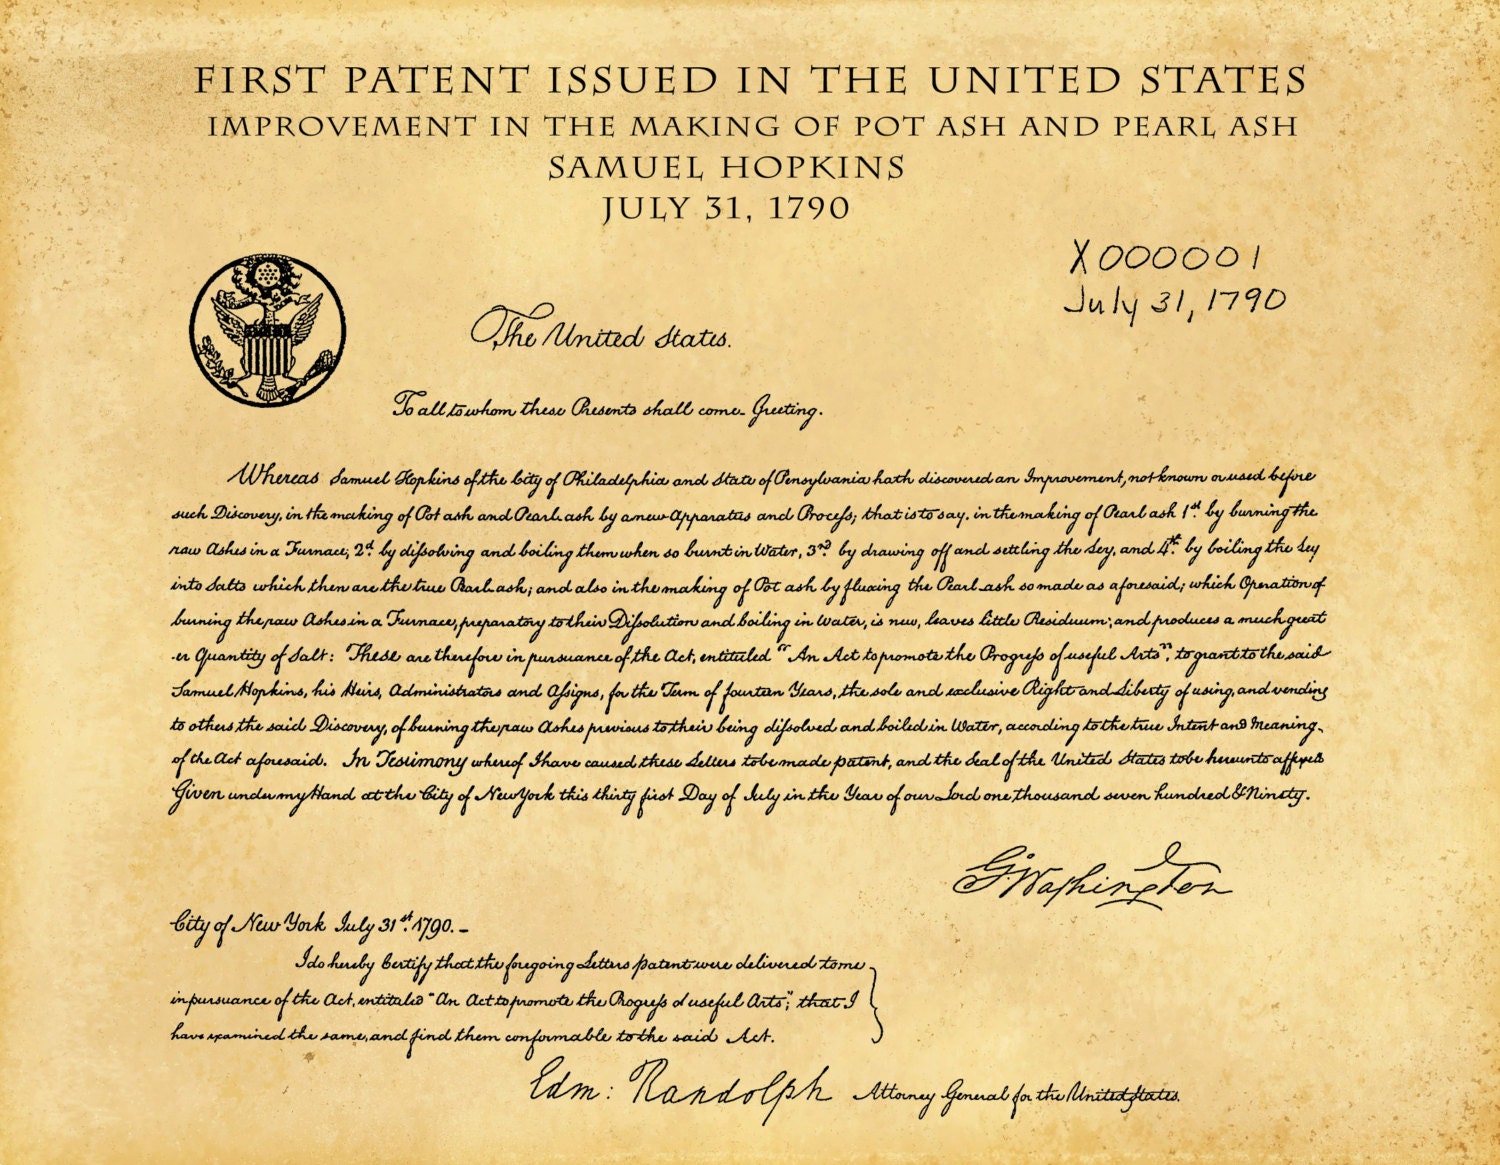 FIRST PATENT ISSUED IN THE UNITED STATES
IMPROVEMENT IN THE MAKING OF POT ASH AND PEARL ASH
SAMUEL HOPKINS
JULY 31, 1790
X000001
July 31, 1790
The United States.
To all to whom these Presents shall come Greeting.
Whereas Samuel Hopkins of the City of Philadelphia and State of Pensylvania hath discovered an Improvement, not known or used before
such Discovery, in the making of Pot ash and Pearl ash by a new Apparatus and Process; that is to say, in the making of Pearl ash 1st. by burning the
raw Ashes in a Furnace, 2d. by dissolving and boiling them when so burnt in Water, 3rd. by drawing off and settling the Ley, and 4th. by boiling the Ley
into Salts which then are the true Pearl ash; and also in the making of Pot ash by fluxing the Pearl ash so made as aforesaid; which Operation of
burning the raw Ashes in a Furnace, preparatory to their Dissolution and boiling in Water, is new, leaves little Residuum; and produces a much great
-er Quantity of Salt: These are therefore in pursuance of the Act, entituled "An Act to promote the Progress of useful Arts", to grant to the said
Samuel Hopkins, his Heirs, Administrators and Assigns, for the Term of fourteen Years, the sole and exclusive Right and Liberty of using, and vending
to others the said Discovery, of burning the raw Ashes previous to their being dissolved and boiled in Water, according to the true Intent and Meaning
of the Act aforesaid. In Testimony whereof I have caused these Letters to be made patent, and the Seal of the United States to be hereunto affixed
Given under my Hand at the City of New York this thirty first Day of July in the Year of our Lord one thousand seven hundred & Ninety.
G. Washington
City of New York July 31st. 1790. -
I do hereby Certify that the foregoing Letters patent were delivered to me
in pursuance of the Act, entituled "An Act to promote the Progress of useful Arts"; that I
have examined the same, and find them conformable to the said Act.
Edm: Randolph Attorney General for the United States.